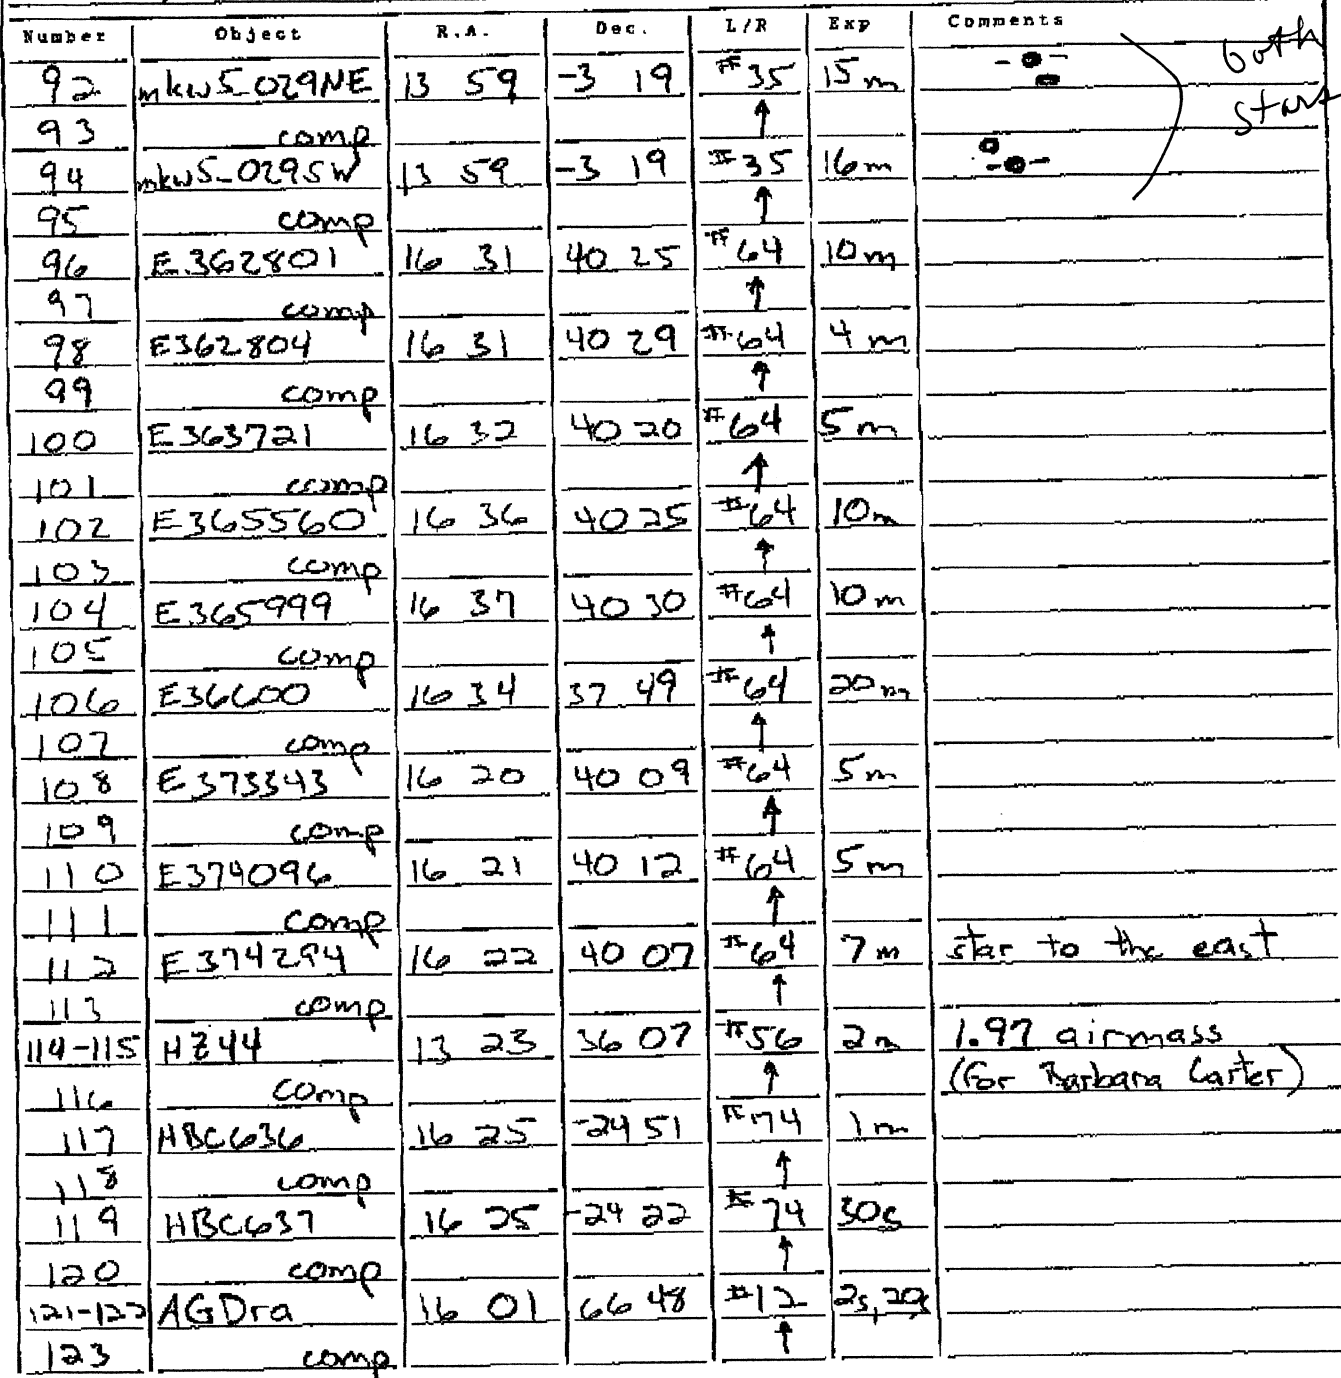 Number Object R.A. Dec. L/R Exp Comments
92 mkw5_029NE 13 59 -3 19 #35 15m both
93 comp ↑ start
94 mkw5_029SW 13 59 -3 19 #35 16m
95 comp ↑
96 E362801 16 31 40 25 #64 10m
97 comp ↑
98 E362804 16 31 40 29 #64 4m
99 comp ↑
100 E363721 16 32 40 20 #64 5m
101 comp ↑
102 E365560 16 36 40 25 #64 10m
103 comp ↑
104 E365999 16 37 40 30 #64 10m
105 comp ↑
106 E36600 16 34 37 49 #64 20m
107 comp ↑
108 E373343 16 20 40 09 #64 5m
109 comp ↑
110 E374096 16 21 40 12 #64 5m
111 comp ↑
112 E374294 16 22 40 07 #64 7m star to the east
113 comp ↑
114-115 HZ44 13 23 36 07 #56 2m 1.97 airmass
116 comp ↑ (for Barbara Carter)
117 HBC636 16 25 -24 51 #74 1m
118 comp ↑
119 HBC637 16 25 -24 22 #74 30s
120 comp ↑
121-122 AGDra 16 01 66 48 #12 2s, 20s
123 comp ↑